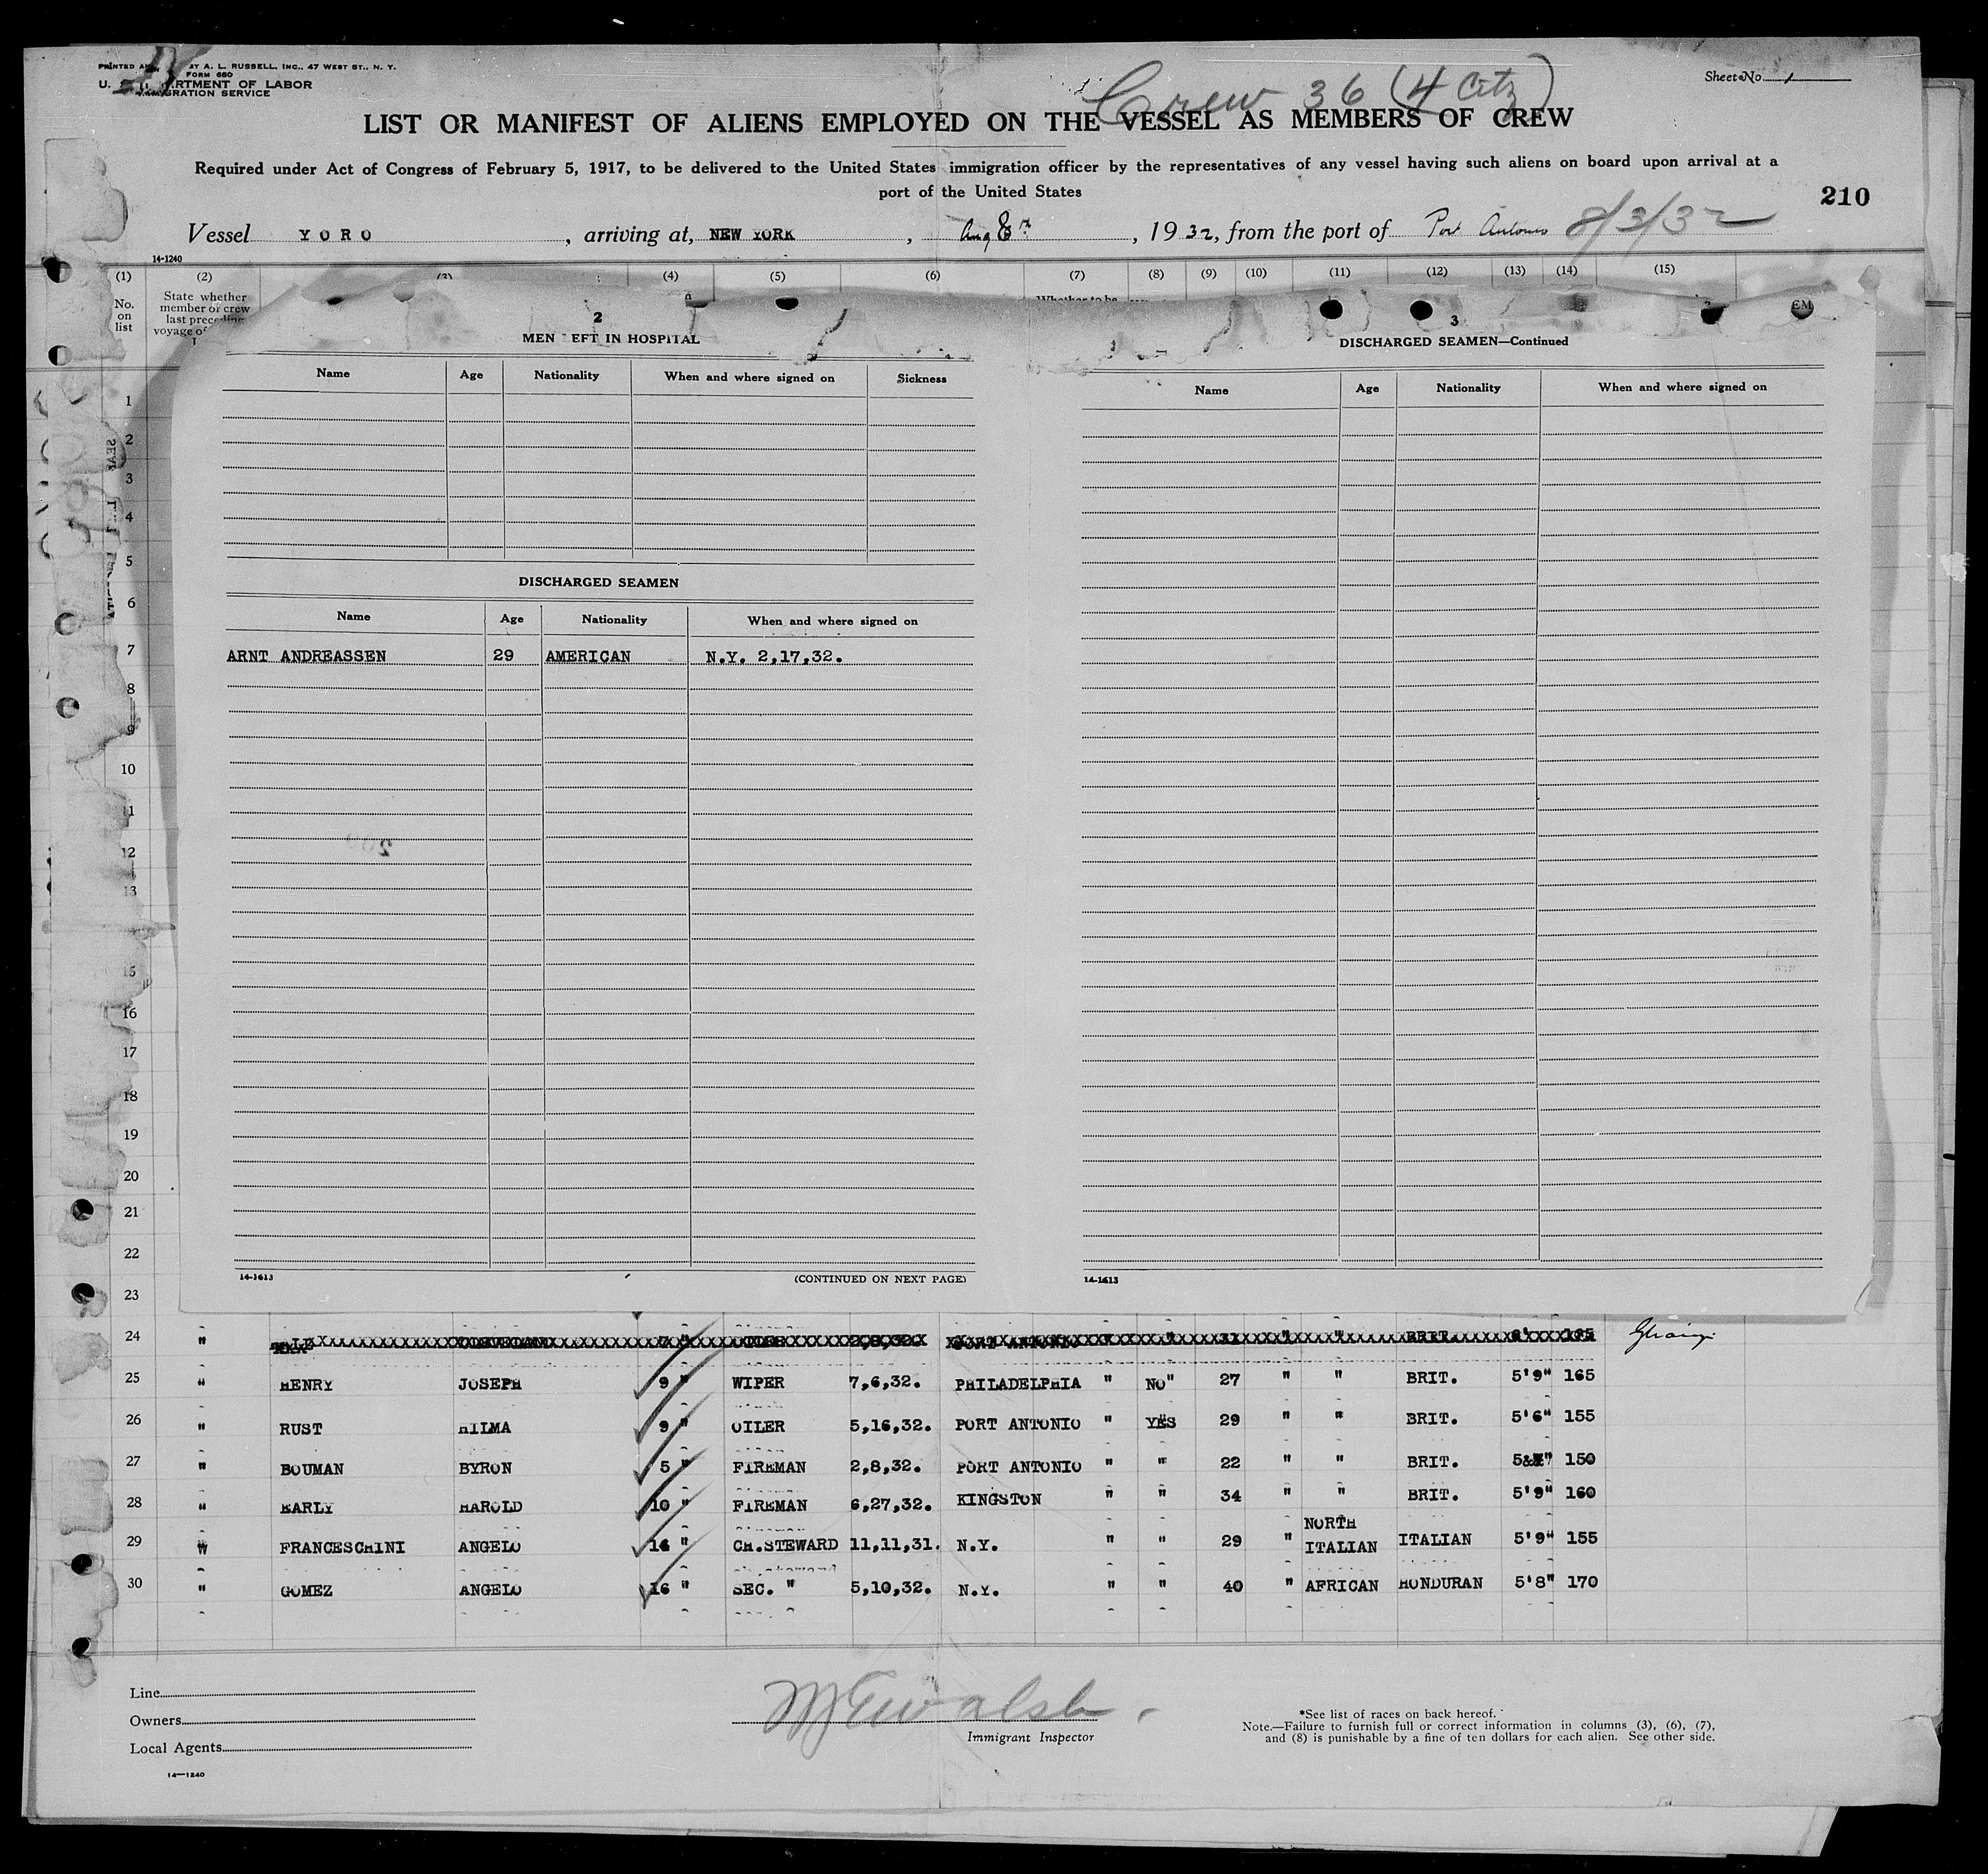 Crew 36 (4 Citz)
Sheet No. 1
A. L. RUSSELL, INC., 47 WEST ST., N. Y.
FORM 680
DEPARTMENT OF LABOR
IMMIGRATION SERVICE
LIST OR MANIFEST OF ALIENS EMPLOYED ON THE VESSEL AS MEMBERS OF CREW
Required under Act of Congress of February 5, 1917, to be delivered to the United States immigration officer by the representatives of any vessel having such aliens on board upon arrival at a
port of the United States
210
Vessel YORO, arriving at, NEW YORK, Aug 8th, 1932, from the port of Port Antonio 8/3/32
14-1240
(1) (2) (3) (4) (5) (6) (7) (8) (9) (10) (11) (12) (13) (14) (15)
No. on list
State whether
member of crew
last preceding
voyage of
Whether to be
EM
2
MEN LEFT IN HOSPITAL
Name Age Nationality When and where signed on Sickness
DISCHARGED SEAMEN
Name Age Nationality When and where signed on
ARNT ANDREASSEN 29 AMERICAN N.Y. 2,17,32.
14-1613 (CONTINUED ON NEXT PAGE)
3
DISCHARGED SEAMEN—Continued
Name Age Nationality When and where signed on
14-1613
1
2
3
4
5
6
7
8
9
10
11
12
13
15
16
17
18
19
20
21
22
23
24 " 7 " 2,8,32. PORT ANTONIO " " 31 " " BRIT. 6' 165
25 " HENRY JOSEPH 9 " WIPER 7,6,32. PHILADELPHIA " NO" 27 " " BRIT. 5'9" 165
26 " RUST HILMA 9 " OILER 5,16,32. PORT ANTONIO " YES 29 " " BRIT. 5'6" 155
27 " BOUMAN BYRON 5 " FIREMAN 2,8,32. PORT ANTONIO " " 22 " " BRIT. 150
28 " EARLY HAROLD 10 " FIREMAN 6,27,32. KINGSTON " " 34 " " BRIT. 5'9" 160
29 " FRANCESCHINI ANGELO 14 " CH.STEWARD 11,11,31. N.Y. " " 29 " NORTH ITALIAN ITALIAN 5'9" 155
30 " GOMEZ ANGELO 16 " SEC. " 5,10,32. N.Y. " " 40 " AFRICAN HONDURAN 5'8" 170
Line
Owners
Local Agents
14—1240
M E Walsh
Immigrant Inspector
*See list of races on back hereof.
Note.—Failure to furnish full or correct information in columns (3), (6), (7),
and (8) is punishable by a fine of ten dollars for each alien. See other side.